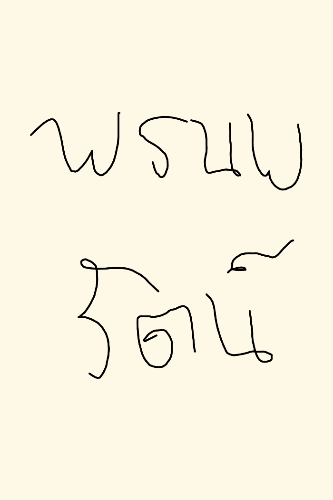 พรนพ
รัตน์